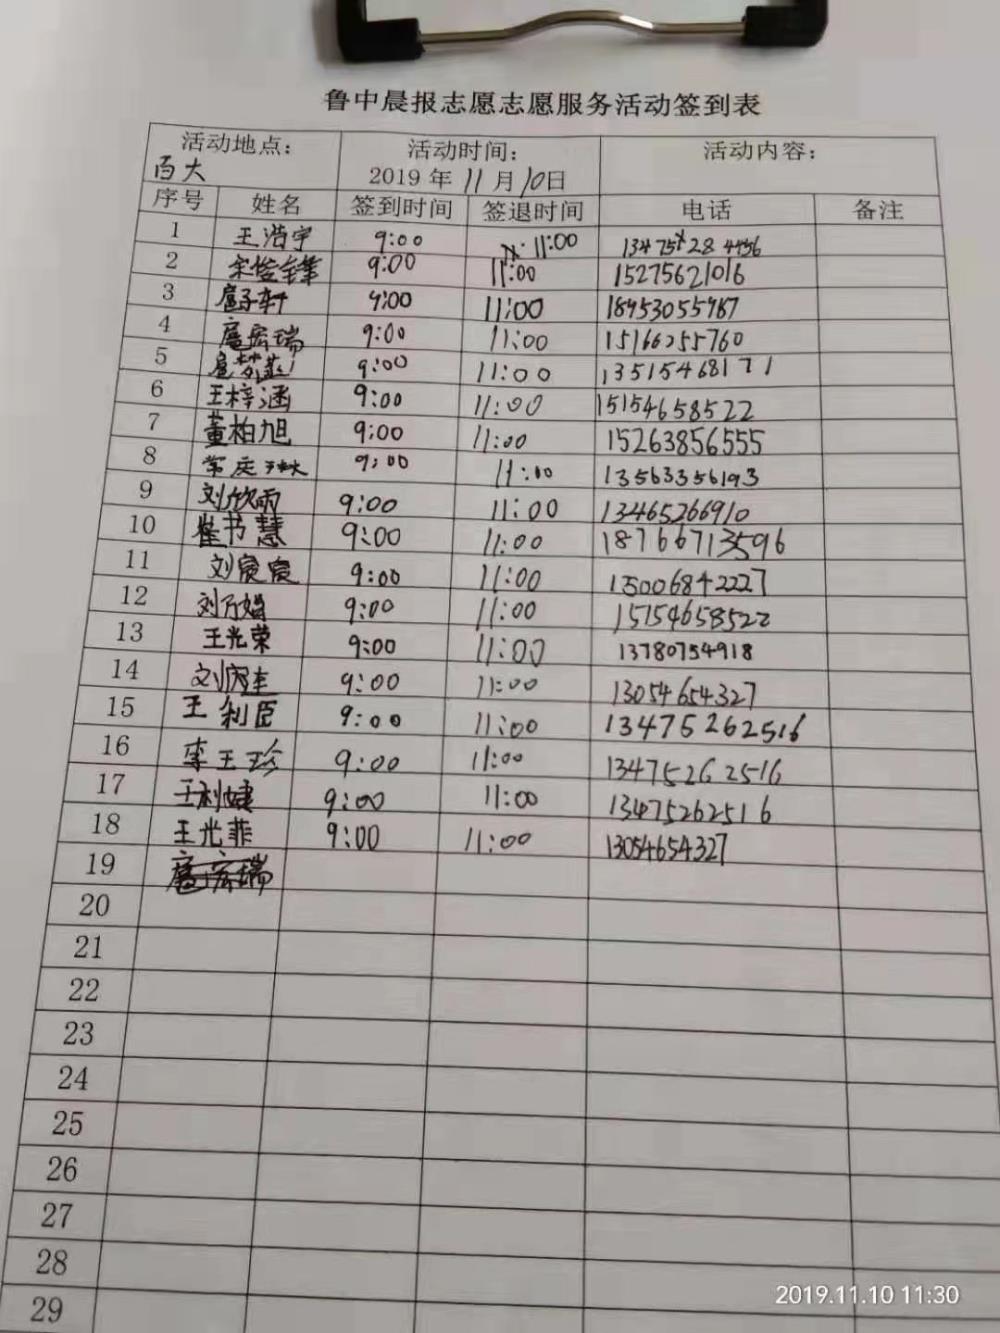 鲁中晨报志愿志愿服务活动签到表
活动地点： 活动时间： 活动内容：
百大 2019年11月10日
序号 姓名 签到时间 签退时间 电话 备注
1 王浩宇 9:00 11:00 13475284456
2 9:00 11:00 15275621016
3 扈子轩 9:00 11:00 18953055987
4 扈宏瑞 9:00 11:00 15166255760
5 9:00 11:00 13515468171
6 王梓涵 9:00 11:00 15154658522
7 董柏旭 9:00 11:00 15263856555
8 9:00 11:00 13563356193
9 刘欣雨 9:00 11:00 13465266910
10 崔书慧 9:00 11:00 18766713596
11 刘宸宸 9:00 11:00 13006842227
12 刘万娟 9:00 11:00 15154658522
13 王光荣 9:00 11:00 13780754918
14 9:00 11:00 13054654327
15 王利臣 9:00 11:00 13475262516
16 李玉珍 9:00 11:00 13475262516
17 王利婕 9:00 11:00 13475262516
18 王光菲 9:00 11:00 13054654327
19 扈宏瑞
20
21
22
23
24
25
26
27
28
29
2019.11.10 11:30